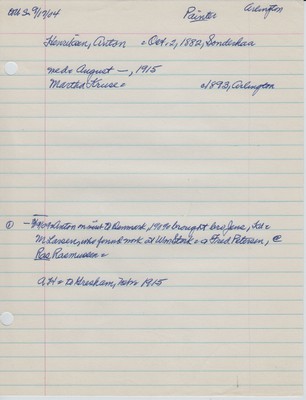 Painter
Arlington
Henriksen, Anton = Oct. 2, 1882, Sonderhaa
made August —, 1915
Martha Kruse = 1893, Arlington
① Anton made to Denmark, 1909 = brought bro Jens, Kr =
M. Larsen, who found work at Wm Stork = a Fred Petersen, @
Ras. Rasmussen =
A.H = to Gresham, Nebr 1915